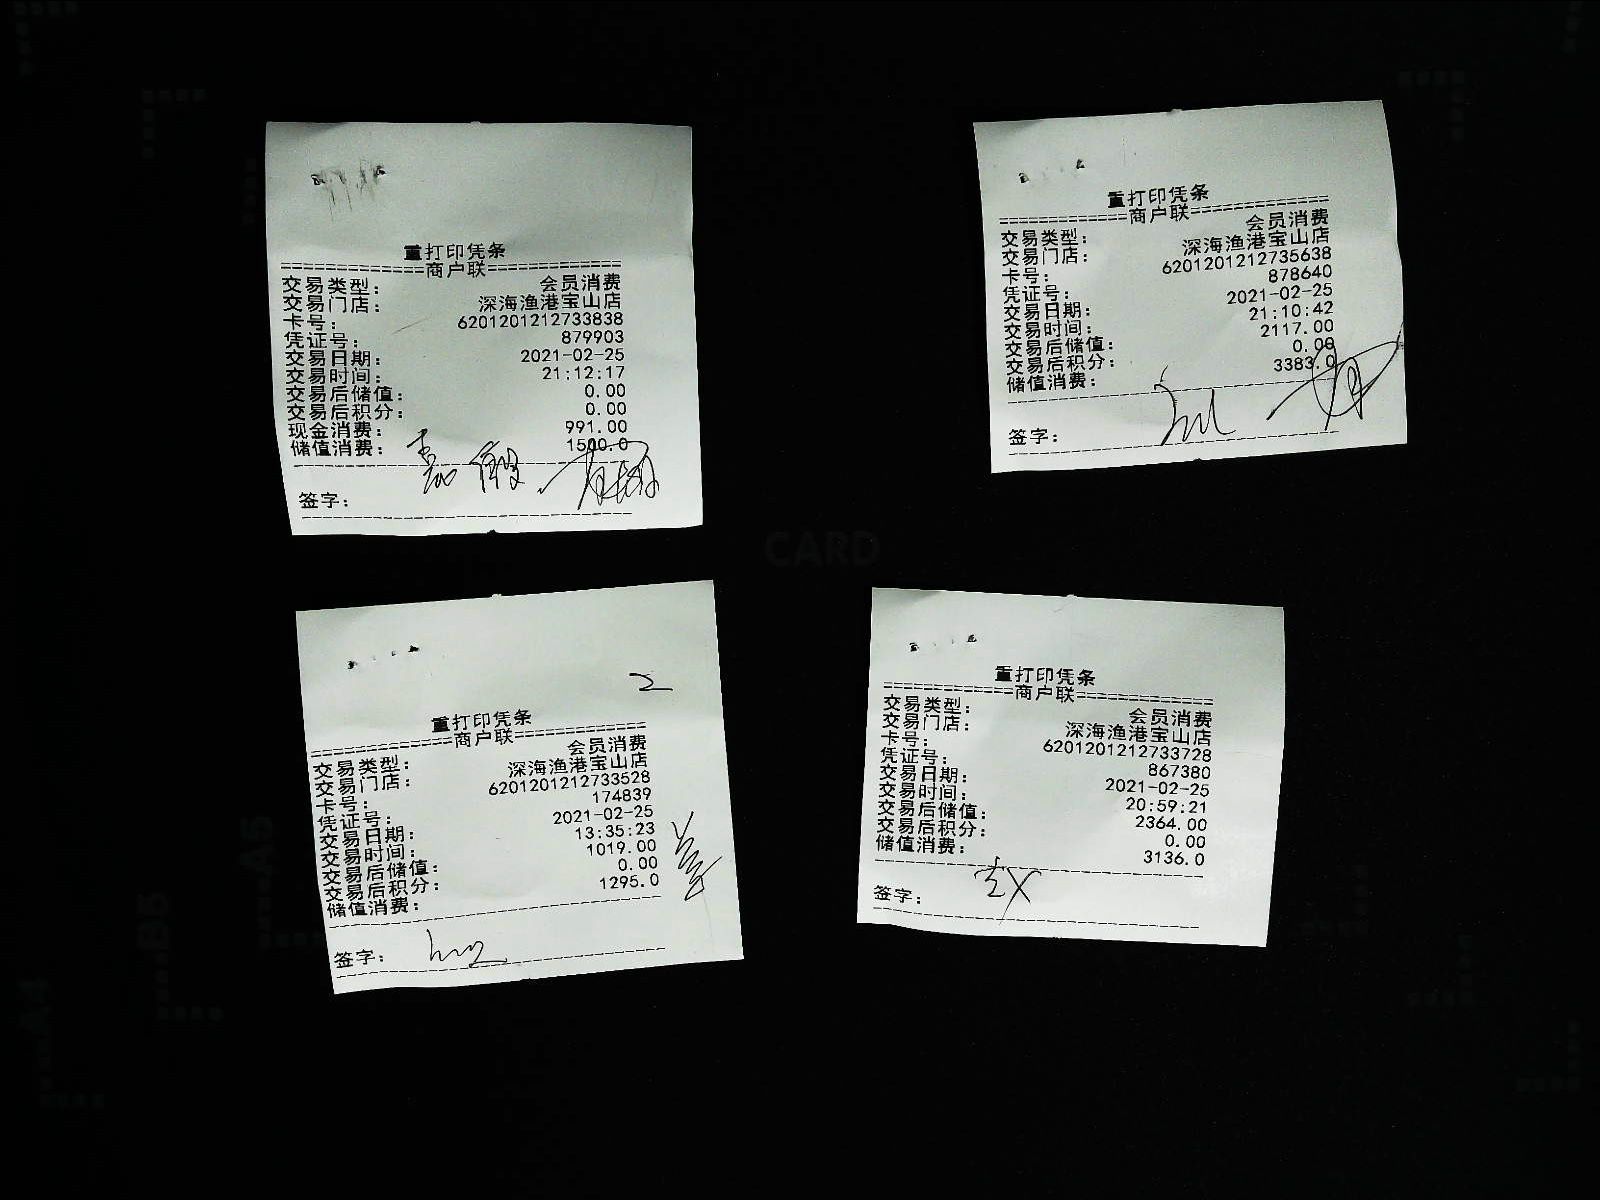 重打印凭条
商户联
交易类型： 会员消费
交易门店： 深海渔港宝山店
卡号： 6201201212733838
凭证号： 879903
交易日期： 2021-02-25
交易时间： 21:12:17
交易后储值： 0.00
交易后积分： 0.00
现金消费： 991.00
储值消费： 1500.0
签字：
重打印凭条
商户联
交易类型： 会员消费
交易门店： 深海渔港宝山店
卡号： 6201201212735638
凭证号： 878640
交易日期： 2021-02-25
交易时间： 21:10:42
交易后储值： 2117.00
交易后积分： 0.00
储值消费： 3383.0
签字：
CARD
2
重打印凭条
商户联
交易类型： 会员消费
交易门店： 深海渔港宝山店
卡号： 6201201212733528
凭证号： 174839
交易日期： 2021-02-25
交易时间： 13:35:23
交易后储值： 1019.00
交易后积分： 0.00
储值消费： 1295.0
签字：
重打印凭条
商户联
交易类型： 会员消费
交易门店： 深海渔港宝山店
卡号： 6201201212733728
凭证号： 867380
交易日期： 2021-02-25
交易时间： 20:59:21
交易后储值： 2364.00
交易后积分： 0.00
储值消费： 3136.0
签字：
A5
B5
A4